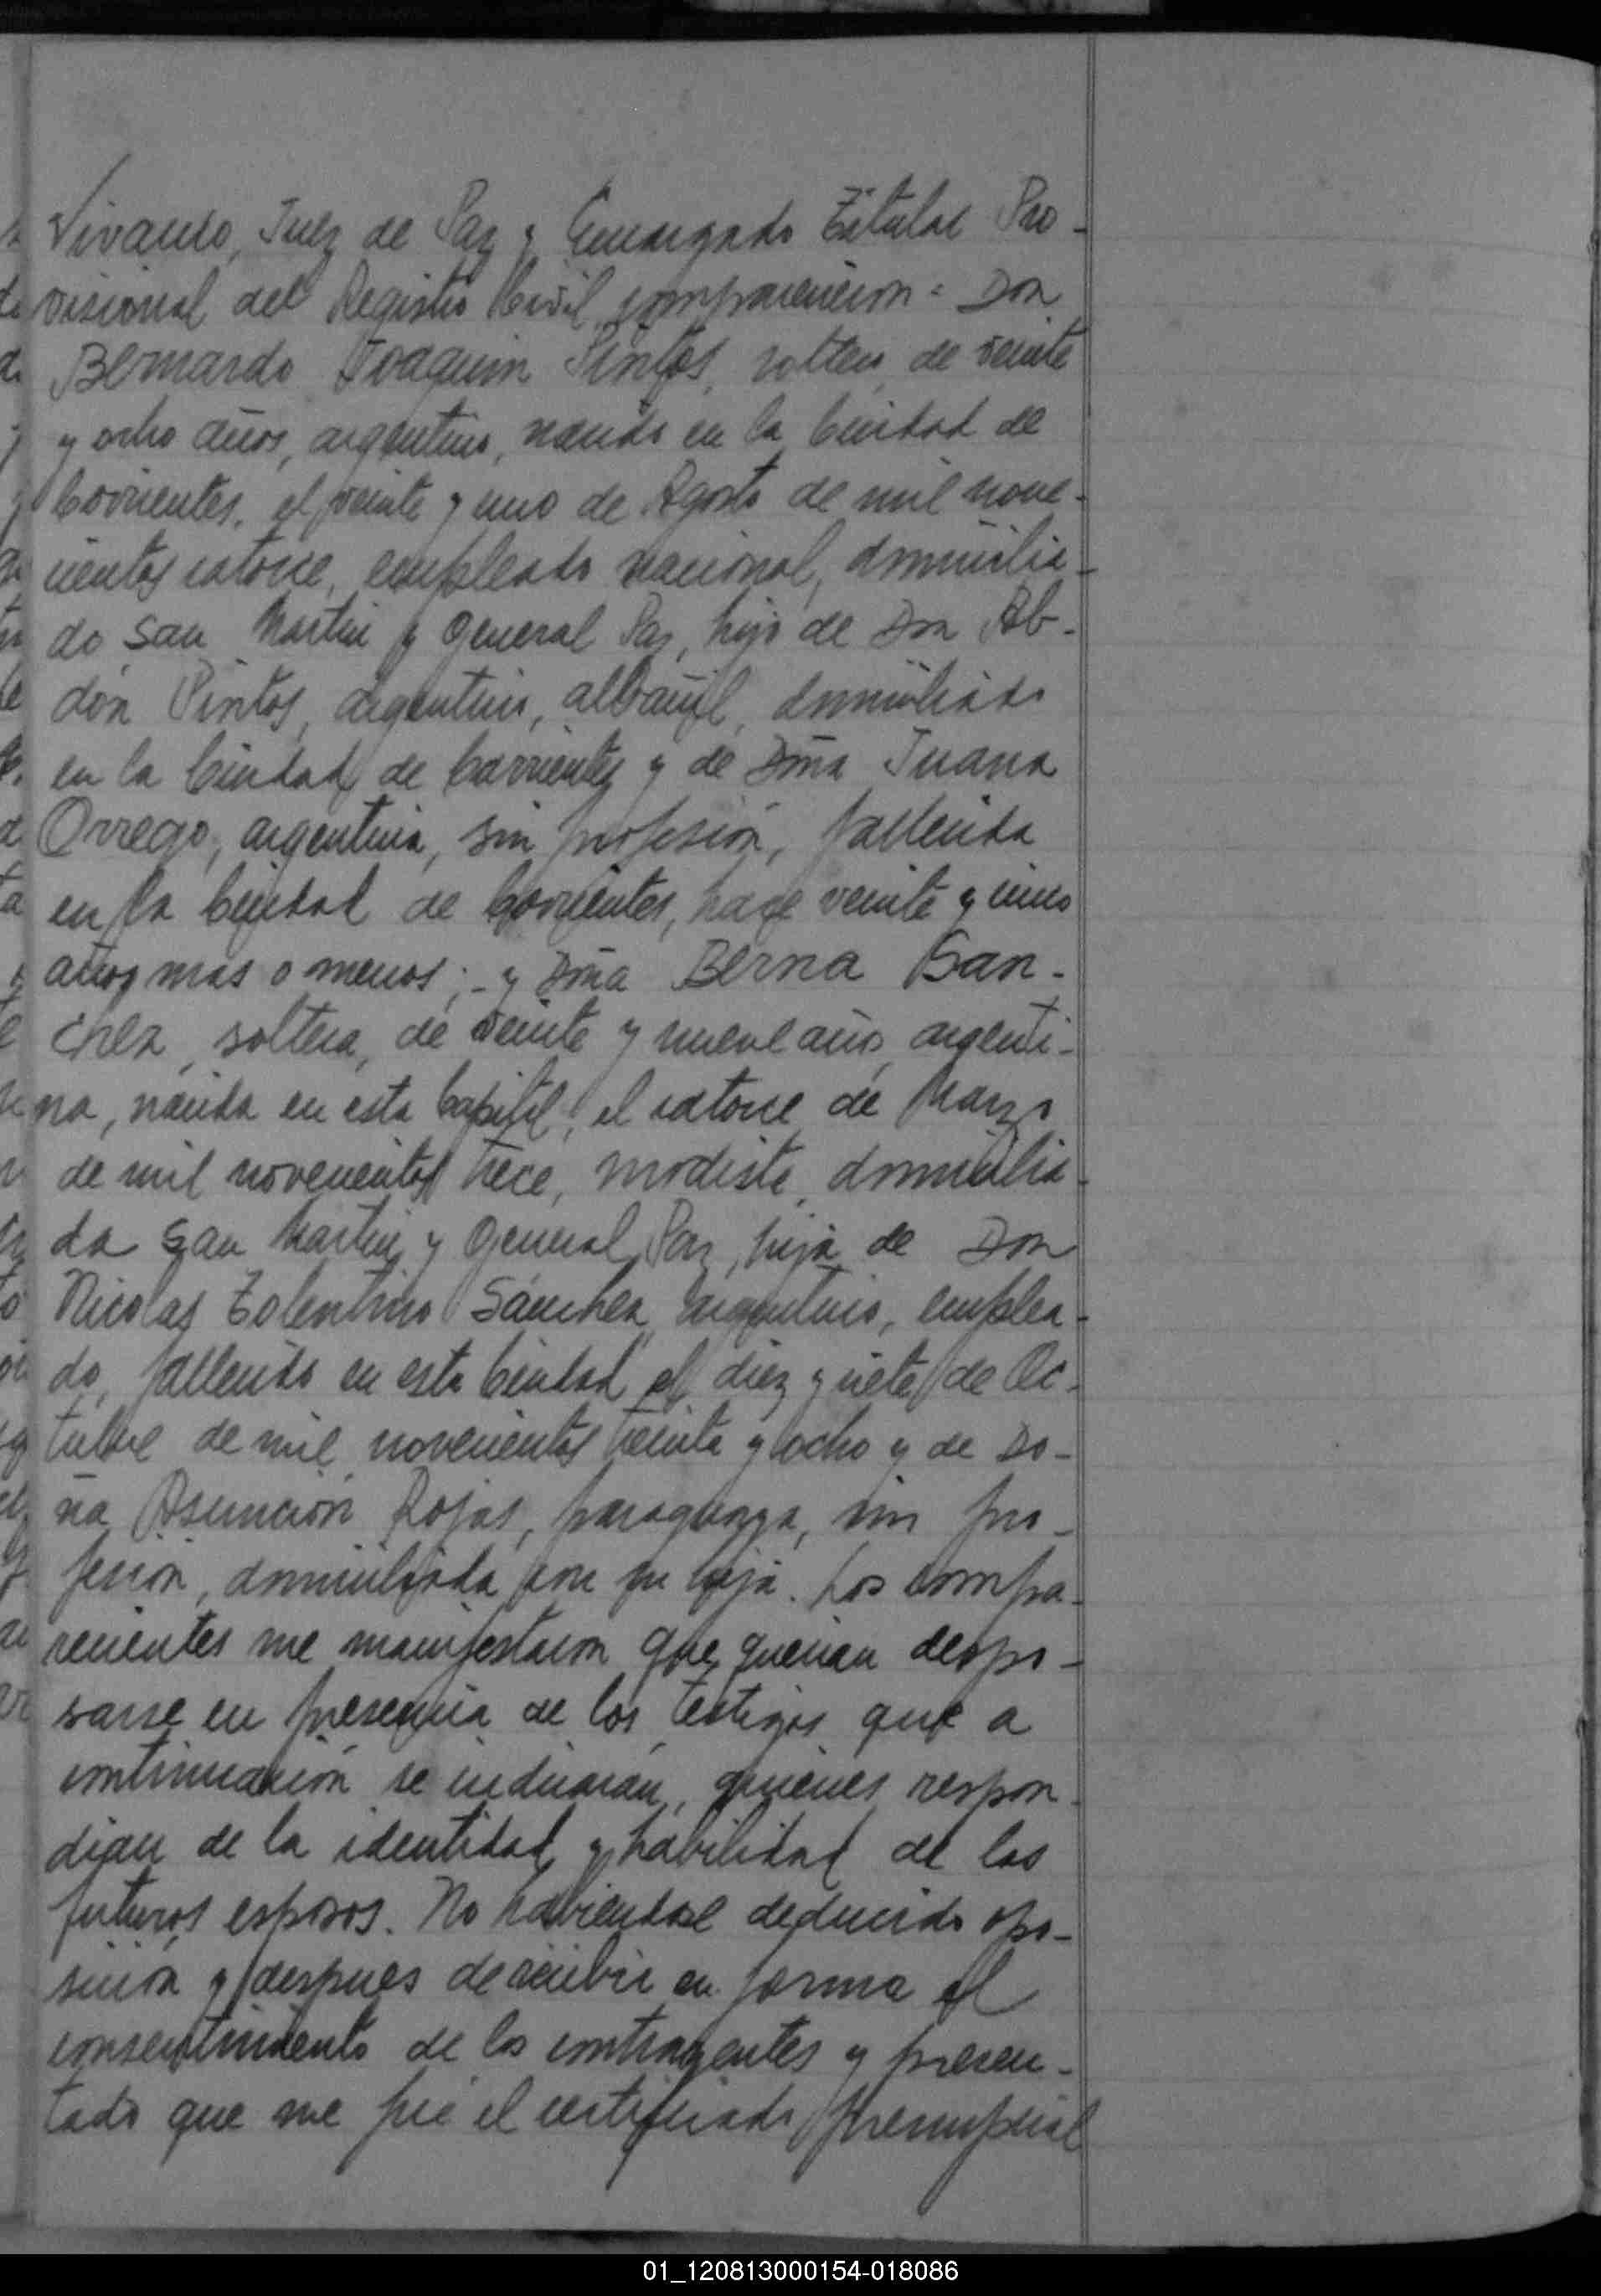 Vivanco, Juez de Paz y Encargado Titular Pro-
visional del Registro Civil, comparecieron = Don
Bernardo Joaquin Pintos, soltero de veinte
y ocho años, argentino, nacido en la Ciudad de
Corrientes, el veinte y uno de Agosto de mil nove-
cientos catorce, empleado nacional, domicilia-
do San Martin y General Paz, hijo de Don Ab-
dón Pintos, argentino, albañil, domiciliado
en la Ciudad de Corrientes y de Dña Juana
Orrego, argentina, sin profesión, fallecida
en la Ciudad de Corrientes, hace veinte y cinco
años mas o menos; - y Dña Berna San-
chez, soltera, de veinte y nueve años, argenti-
na, nacida en esta Capital, el catorce de Marzo
de mil novecientos trece, modista, domicilia-
da San Martin y General Paz, hija de Don
Nicolas Tolentino Sánchez, argentino, emplea-
do, fallecido en esta Ciudad el diez y siete de Oc-
tubre de mil novecientos treinta y ocho y de Do-
ña Asunción Rojas, paraguaya, sin pro-
fesión, domiciliada con su hija. Los compa-
recientes me manifestaron que querian despo-
sarse en presencia de los testigos que a
continuación se indicarán, quienes respon-
dian de la identidad y habilidad de los
futuros esposos. No habiendose deducido opo-
sición y despues de recibir en forma el
consentimiento de los contrayentes y presen-
tado que me fué el certificado prenupcial
01_120813000154-018086